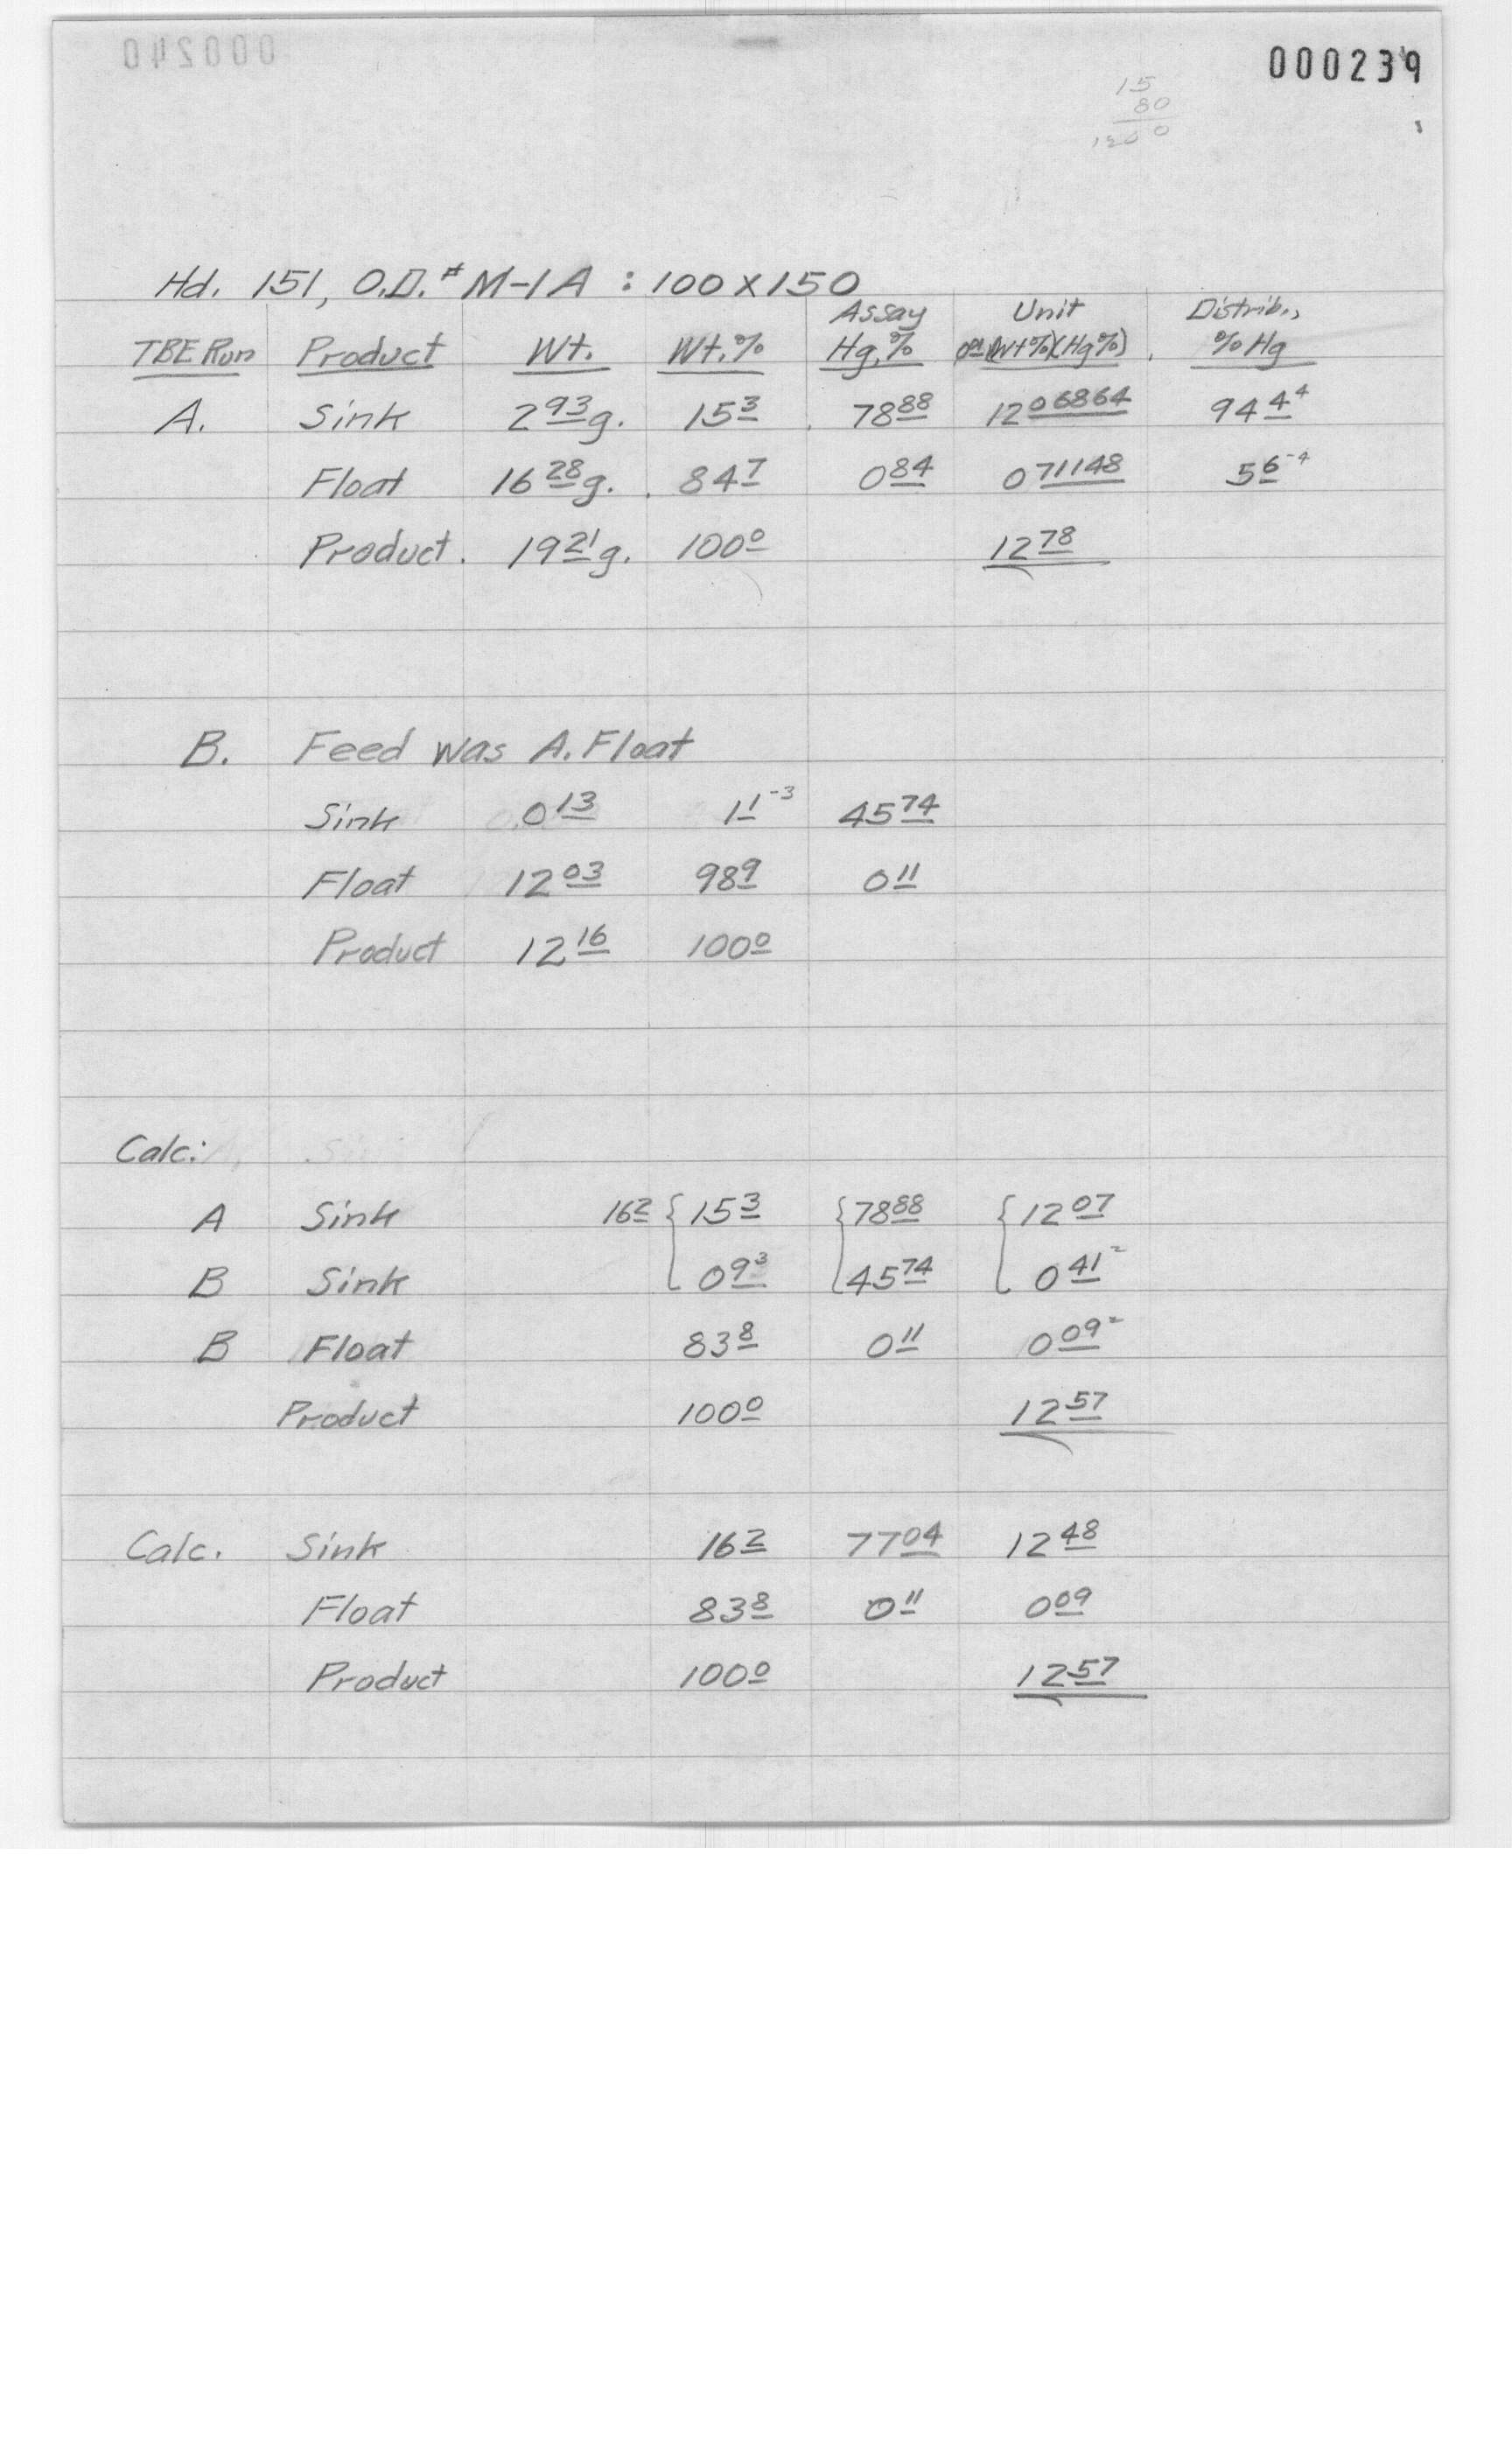 000239
15
80
1200
Hd. 151, O.D.# M-1A : 100 x 150
Assay Unit Distrib.,
TBE Run Product Wt. Wt.% Hg,% (Wt%)(Hg%) % Hg
A. Sink 2 93 g. 15 3 78 88 12 06864 94 4 4
Float 16 28 g. 84 7 0 84 0 71148 5 6 -4
Product 19 21 g. 100 0 12 78
B. Feed was A. Float
Sink 0 13 1 1 -3 45 74
Float 12 03 98 9 0 11
Product 12 16 100 0
Calc:
A Sink 16 2 { 15 3 { 78 88 { 12 07
B Sink 0 9 3 45 74 0 41 2
B Float 83 8 0 11 0 09 2
Product 100 0 12 57
Calc. Sink 16 2 77 04 12 48
Float 83 8 0 11 0 09
Product 100 0 12 57